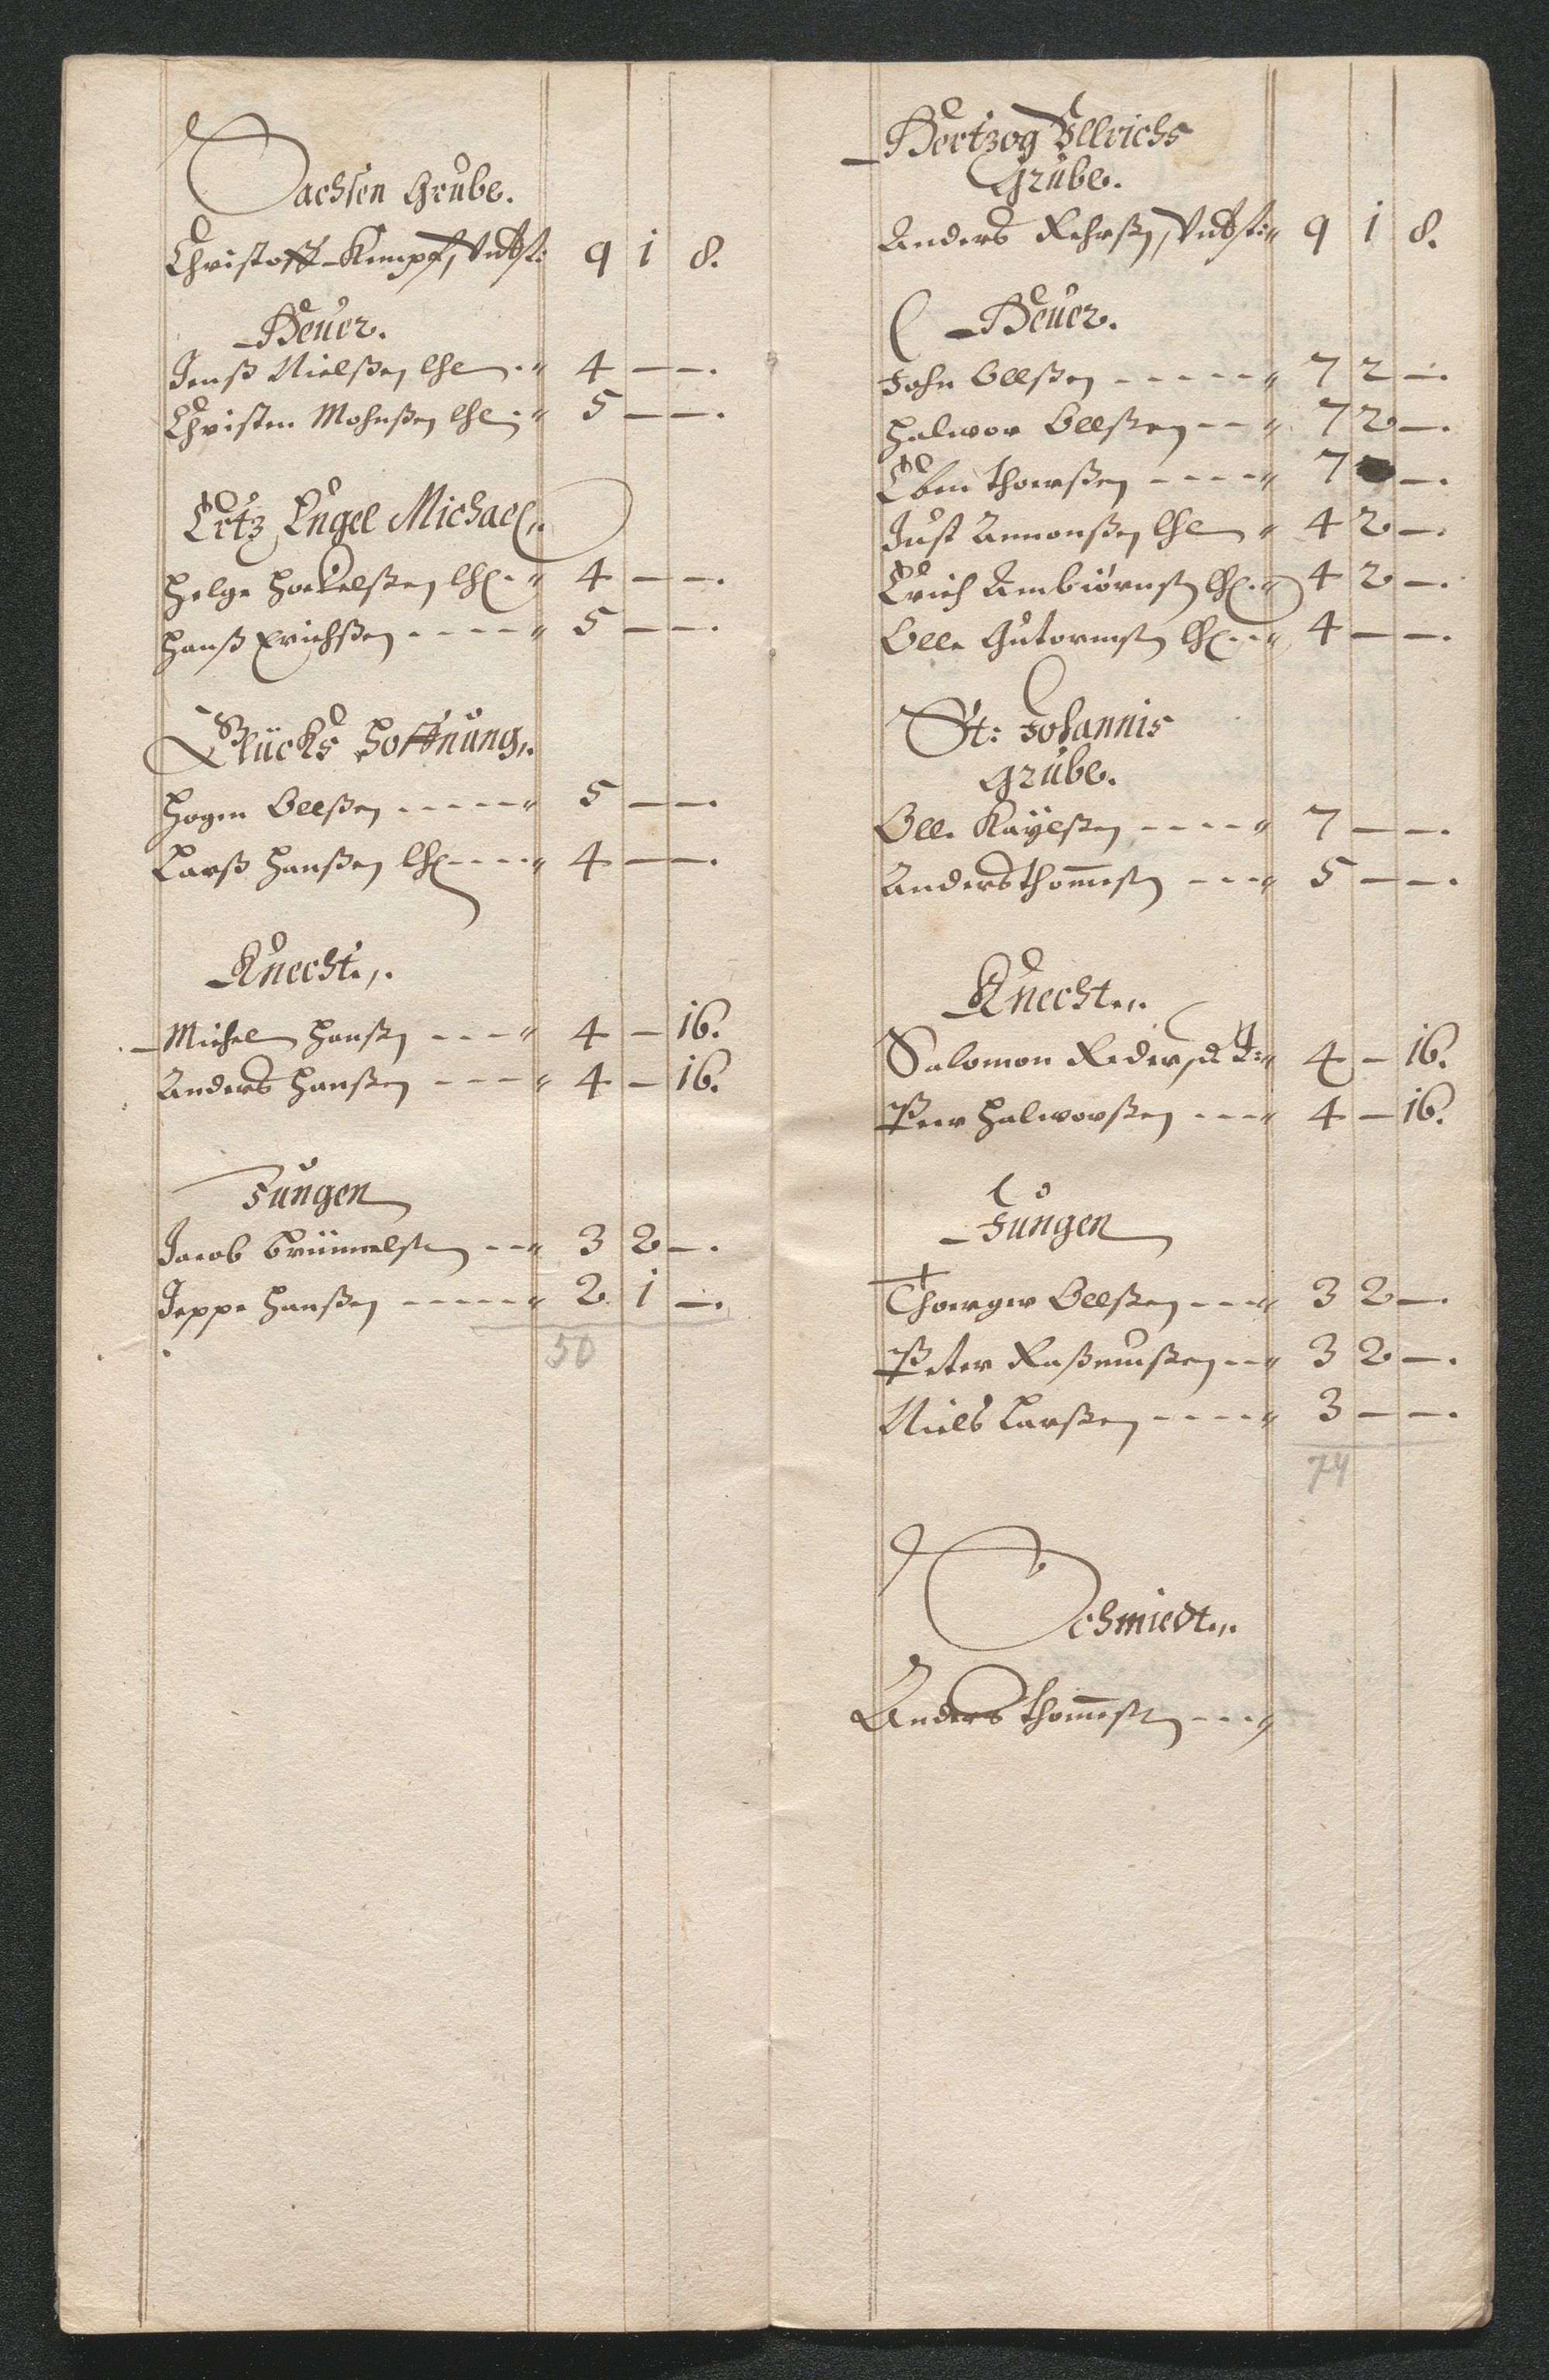 Sachsen Grube.
Christoff Kimpf, Undst: 9 1 8.
Heuer.
Jenß Nielßen lhe 4 — —.
Christen Mohnßen lhe 5 — —.
Ertz Engel Michael.
Helge lhe 4 — —.
Hanß Erichßen 5 — —.
Glücks Hoffnung.
Hogen Ollßen 5 — —.
Larß Hanßen lhe 4 — —.
Knechte.
Michel Hanßen 4 — 16.
Anders Hanßen 4 — 16.
Jungen
Jacob 3 2 —.
Jeppe Hanßen 2 1 —.
50
Hertzog Ullrichs
Grube.
Anders Undst: 9 1 8.
Heuer.
John Ollßen 7 2 —.
Halwor Ollßen 7 2 —.
Eben Thorßen 7 —.
Just Amonßen lhe 4 2 —.
Erich Ambiörnßen lhe 4 2 —.
Olle Gutormßen lhe 4 — —.
St: Johannis
Grube.
Olle Kaÿlßen 7 — —.
Anders Thommeßen 5 — —.
Knechte.
Salomon Reder, 4 — 16.
Peer Halworßen 4 — 16.
Jungen
Thorger Ollßen 3 2 —.
Peter Raßmußen 3 2 —.
Niels Larßen 3 — —.
74
Schmiedte.
Anders Thommeßen